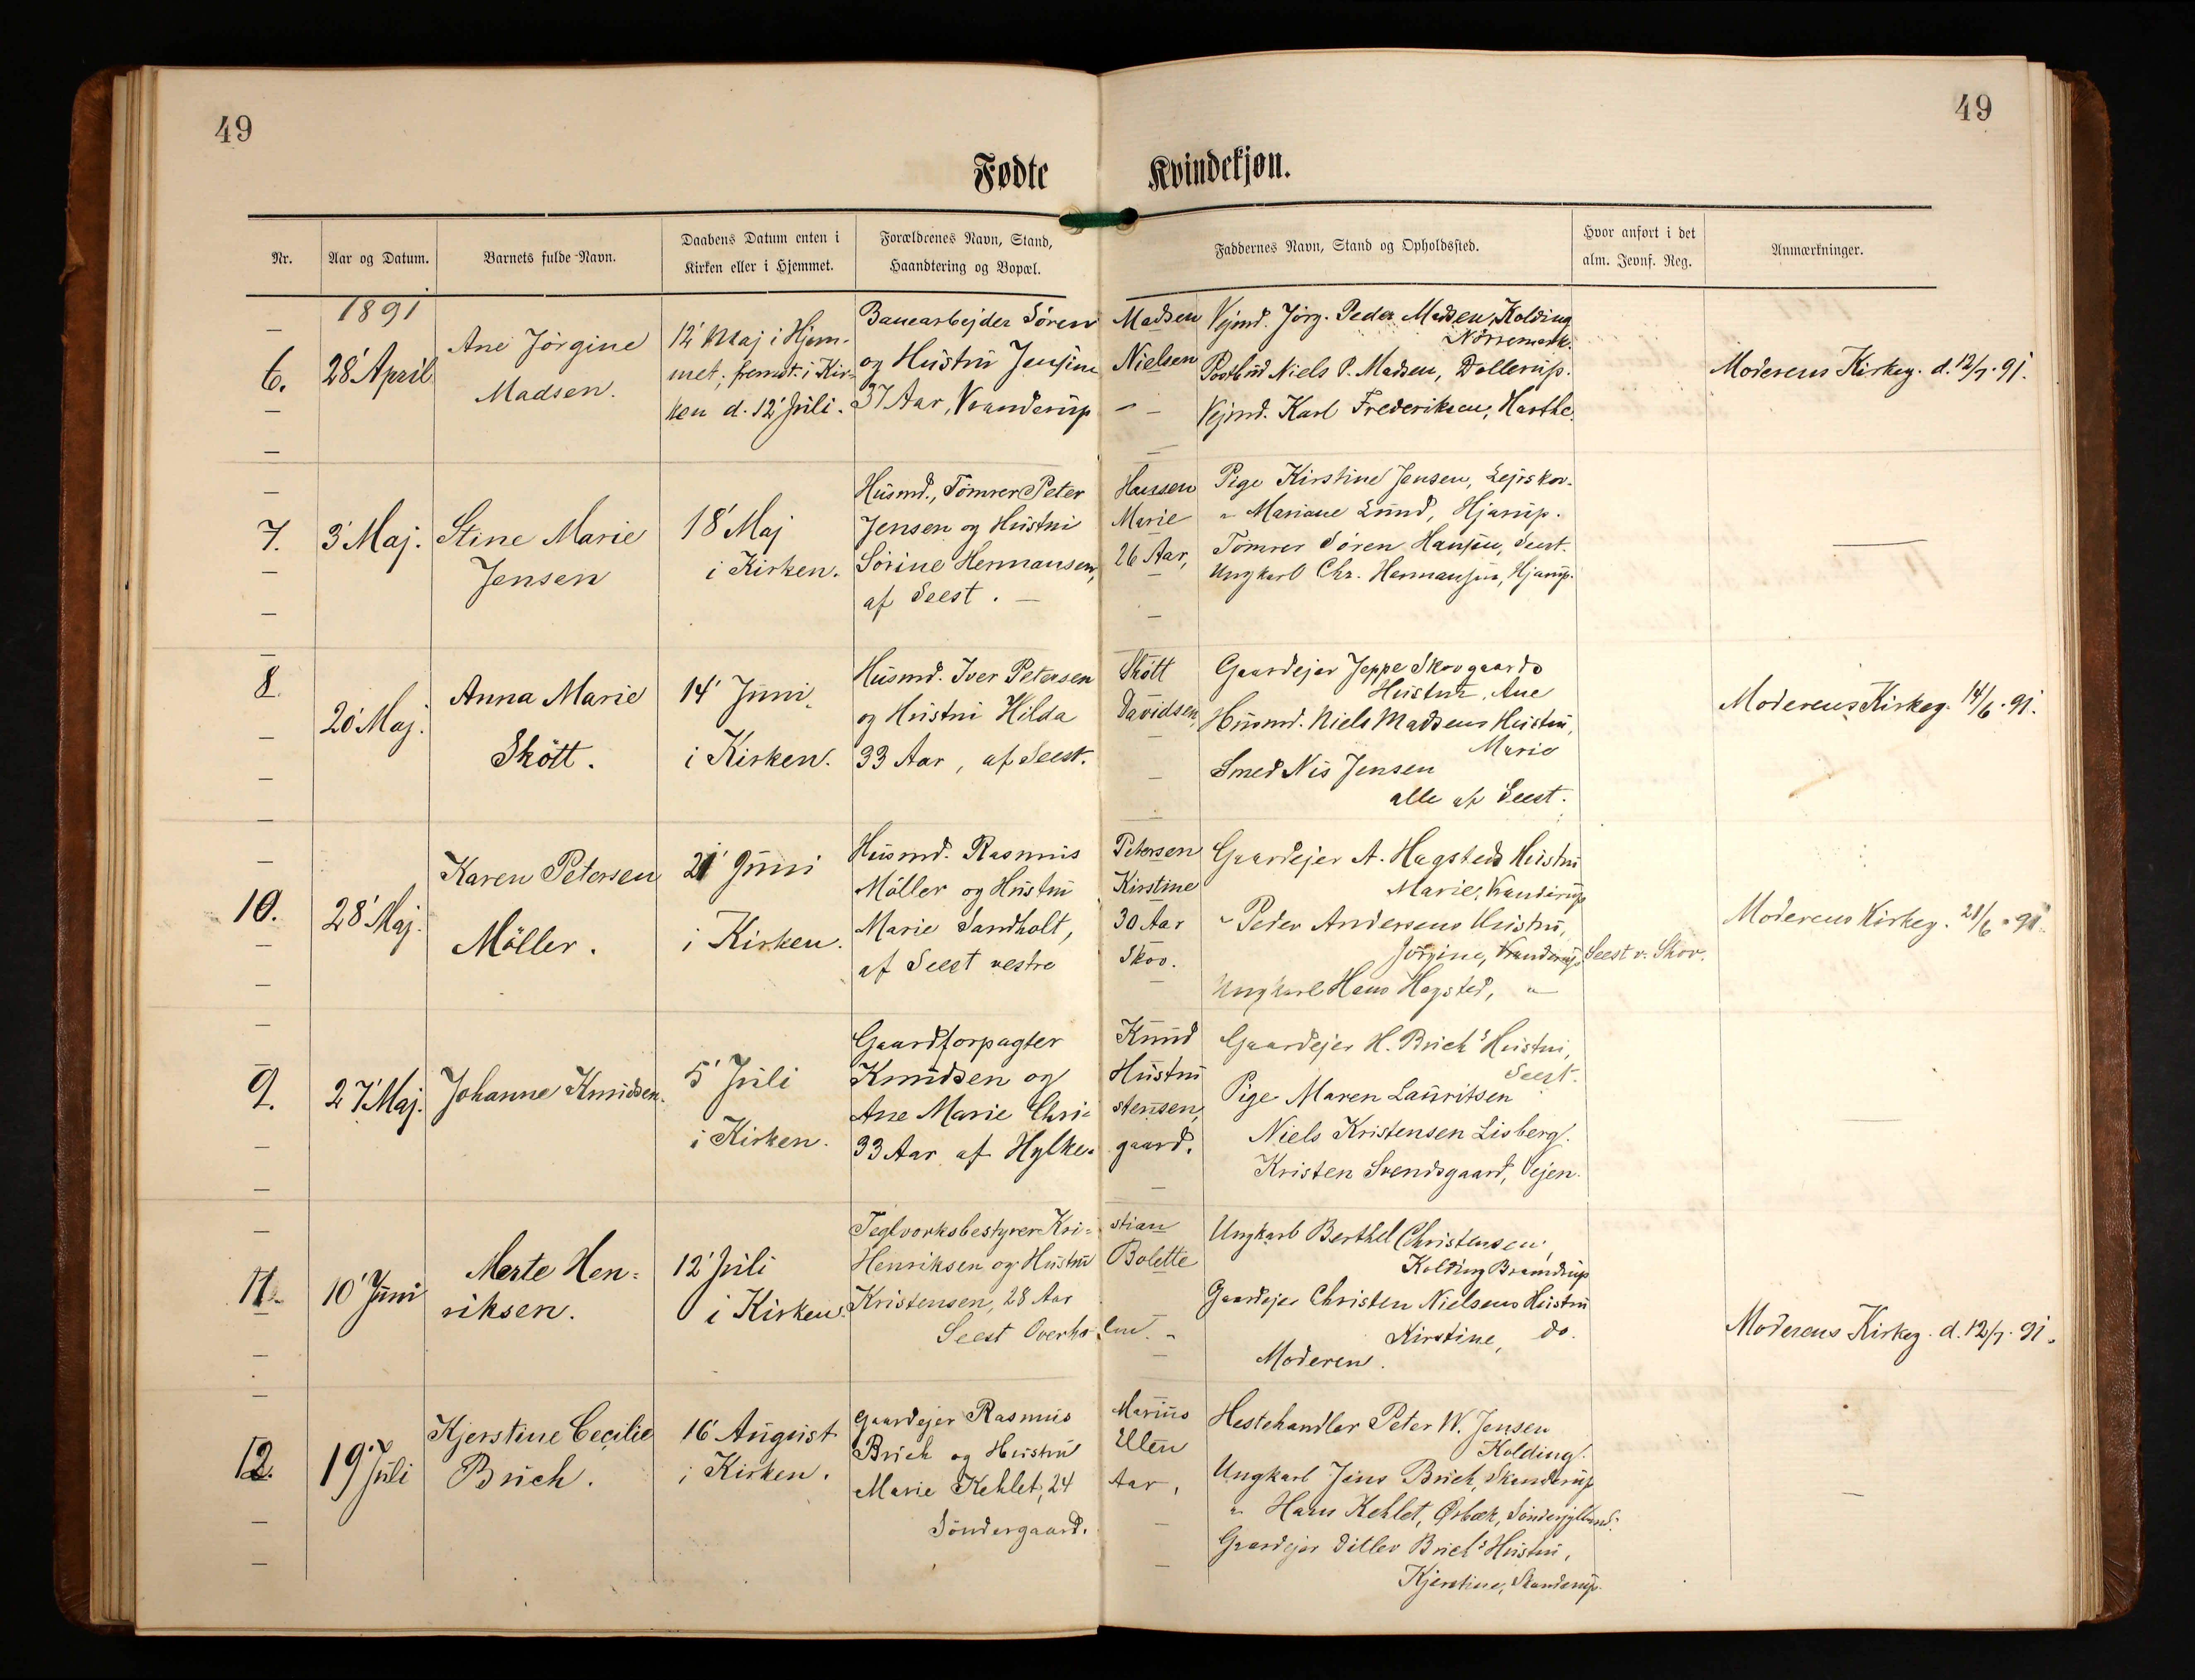 49
49
Fødte Kvindekjøn.
Nr.
Aar og Datum.
Barnets fulde Navn.
Daabens Datum enten i
Kirken eller i Hjemmet.
Forældrenes Navn, Stand,
Haandtering og Bopæl.
Faddernes Navn, Stand og Opholdssted.
Hvor anført i det
alm. Jevnf. Reg.
Anmærkninger.
1891
6.
28' April
Ane Jörgine
Madsen.
12' Maj i Hjem-
met; fremst. i Kir-
ken d. 12' Juli.
Banearbejder Sören Madsen
og Hustru Jensine Nielsen
37 Aar, Vranderup
Vejmd. Jörg. Peder Madsen, Kolding
Nörremark.
Postbud Niels P. Madsen, Dollerup.
Vejmd. Karl Frederiksen, Harthe.
Moderens Kirkeg. d. 12/7. 91.
7.
3' Maj.
Stine Marie
Jensen
18' Maj
i Kirken.
Husmd., Tömrer Peter Hansen
Jensen og Hustru Marie
Sörine Hermansen, 26 Aar,
af Seest.
Pige Kirstine Jensen, Lejrskov.
" Mariane Lund, Hjarup.
Tömrer Sören Hansen, Seest.
Ungkarl Chr. Hermansen, Hjarup.
8
20' Maj.
Anna Marie
Skött.
14' Juni
i Kirken.
Husmd. Iver Petersen Skött
og Hustru Hilda Davidsen,
33 Aar, af Seest.
Gaardejer Jeppe Skovgaards
Hustru, Ane
Husmd. Niels Madsens Hustru,
Marie
Smed Nis Jensen
alle af Seest.
Moderens Kirkeg. 14/6. 91.
10.
28' Maj.
Karen Petersen
Möller.
21' Juni
i Kirken.
Husmd. Rasmus Petersen
Möller og Hustru Kirstine
Marie Sandholt, 30 Aar
af Seest vestre Skov.
Gaardejer A. Hagsteds Hustru
Marie, Vranderup
" Peder Andersens Hustru,
Jörgine, Vranderup
Ungkarl Hans Hagsted, "
Seest v. Skov.
Moderens Kirkeg. 21/6. 91.
9.
27' Maj.
Johanne Knudsen.
5' Juli
i Kirken.
Gaardforpagter Knud
Knudsen og Hustru
Ane Marie Chri- stensen,
33 Aar af Hylke- gaard.
Gaardejer H. Buch's Hustru,
Seest.
Pige Maren Lauritsen
Niels Kristensen Lisberg.
Kristen Svendsgaard, Vejen.
11.
10' Juni
Merte Hen-
riksen.
12' Juli
i Kirken.
Teglværksbestyrer Kri- stian
Henriksen og Hustru Bolette
Kristensen, 28 Aar
Seest Overho- lm.
Ungkarl Berthel Christensen,
Kolding Bramdrup
Gaardejer Christen Nielsens Hustru
Kirstine, do.
Moderen.
Moderens Kirkeg. d. 12/7. 91.
12.
19' Juli
Kjerstine Cecilie
Buch.
16' August
i Kirken.
Gaardejer Rasmus Marius
Buch og Hustru Ellen
Marie Kehlet, 24 Aar,
Söndergaard.
Hestehandler Peter W. Jensen
Kolding.
Ungkarl Jens Buch, Skanderup
" Hans Kehlet, Ørbæk, Sönderjylland.
Gaardejer Ditlev Buch's Hustru,
Kjerstine, Skanderup.